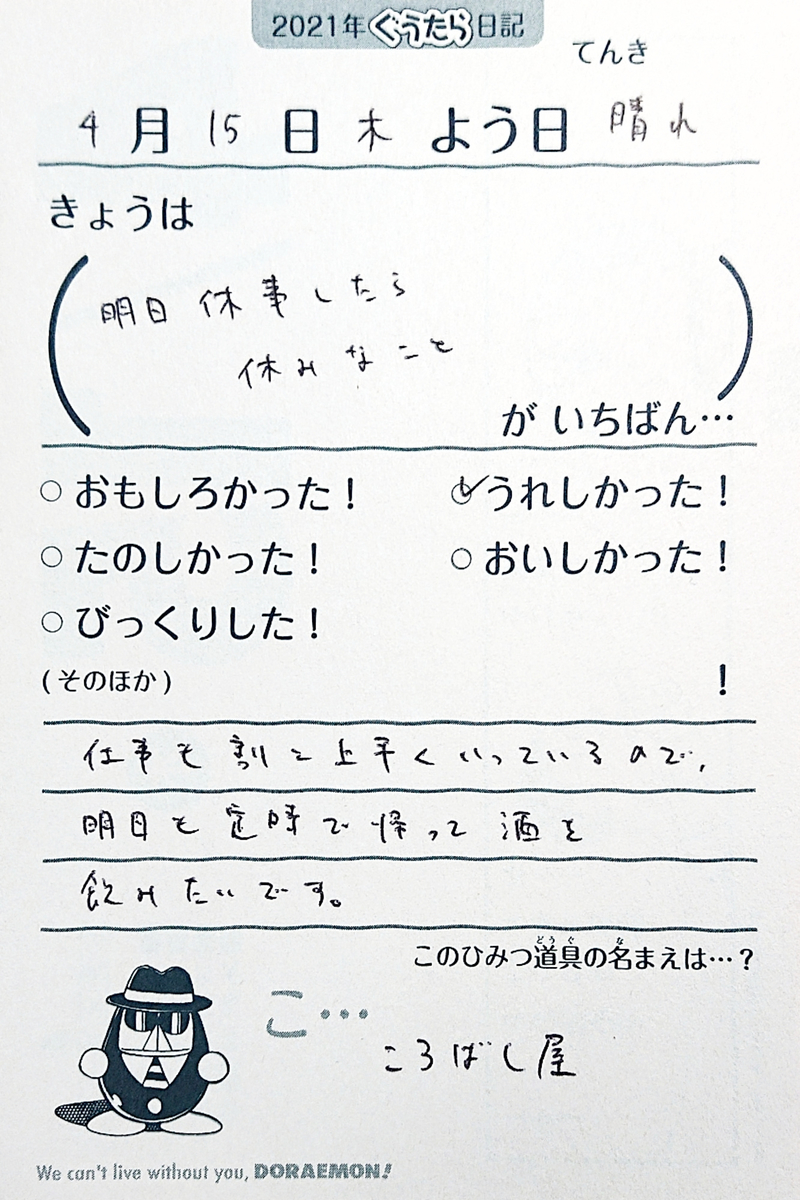 2021年ぐうたら日記
てんき
4月15日木よう日 晴れ
きょうは
明日休事したら
休みなこと
がいちばん…
○おもしろかった！ ○うれしかった！
○たのしかった！ ○おいしかった！
○びっくりした！
(そのほか) ！
仕事も割と上手くいっているので、
明日も定時で帰って酒を
飲みたいです。
このひみつ道具の名まえは…？
どうぐ な
こ…
ころばし屋
We can't live without you, DORAEMON!